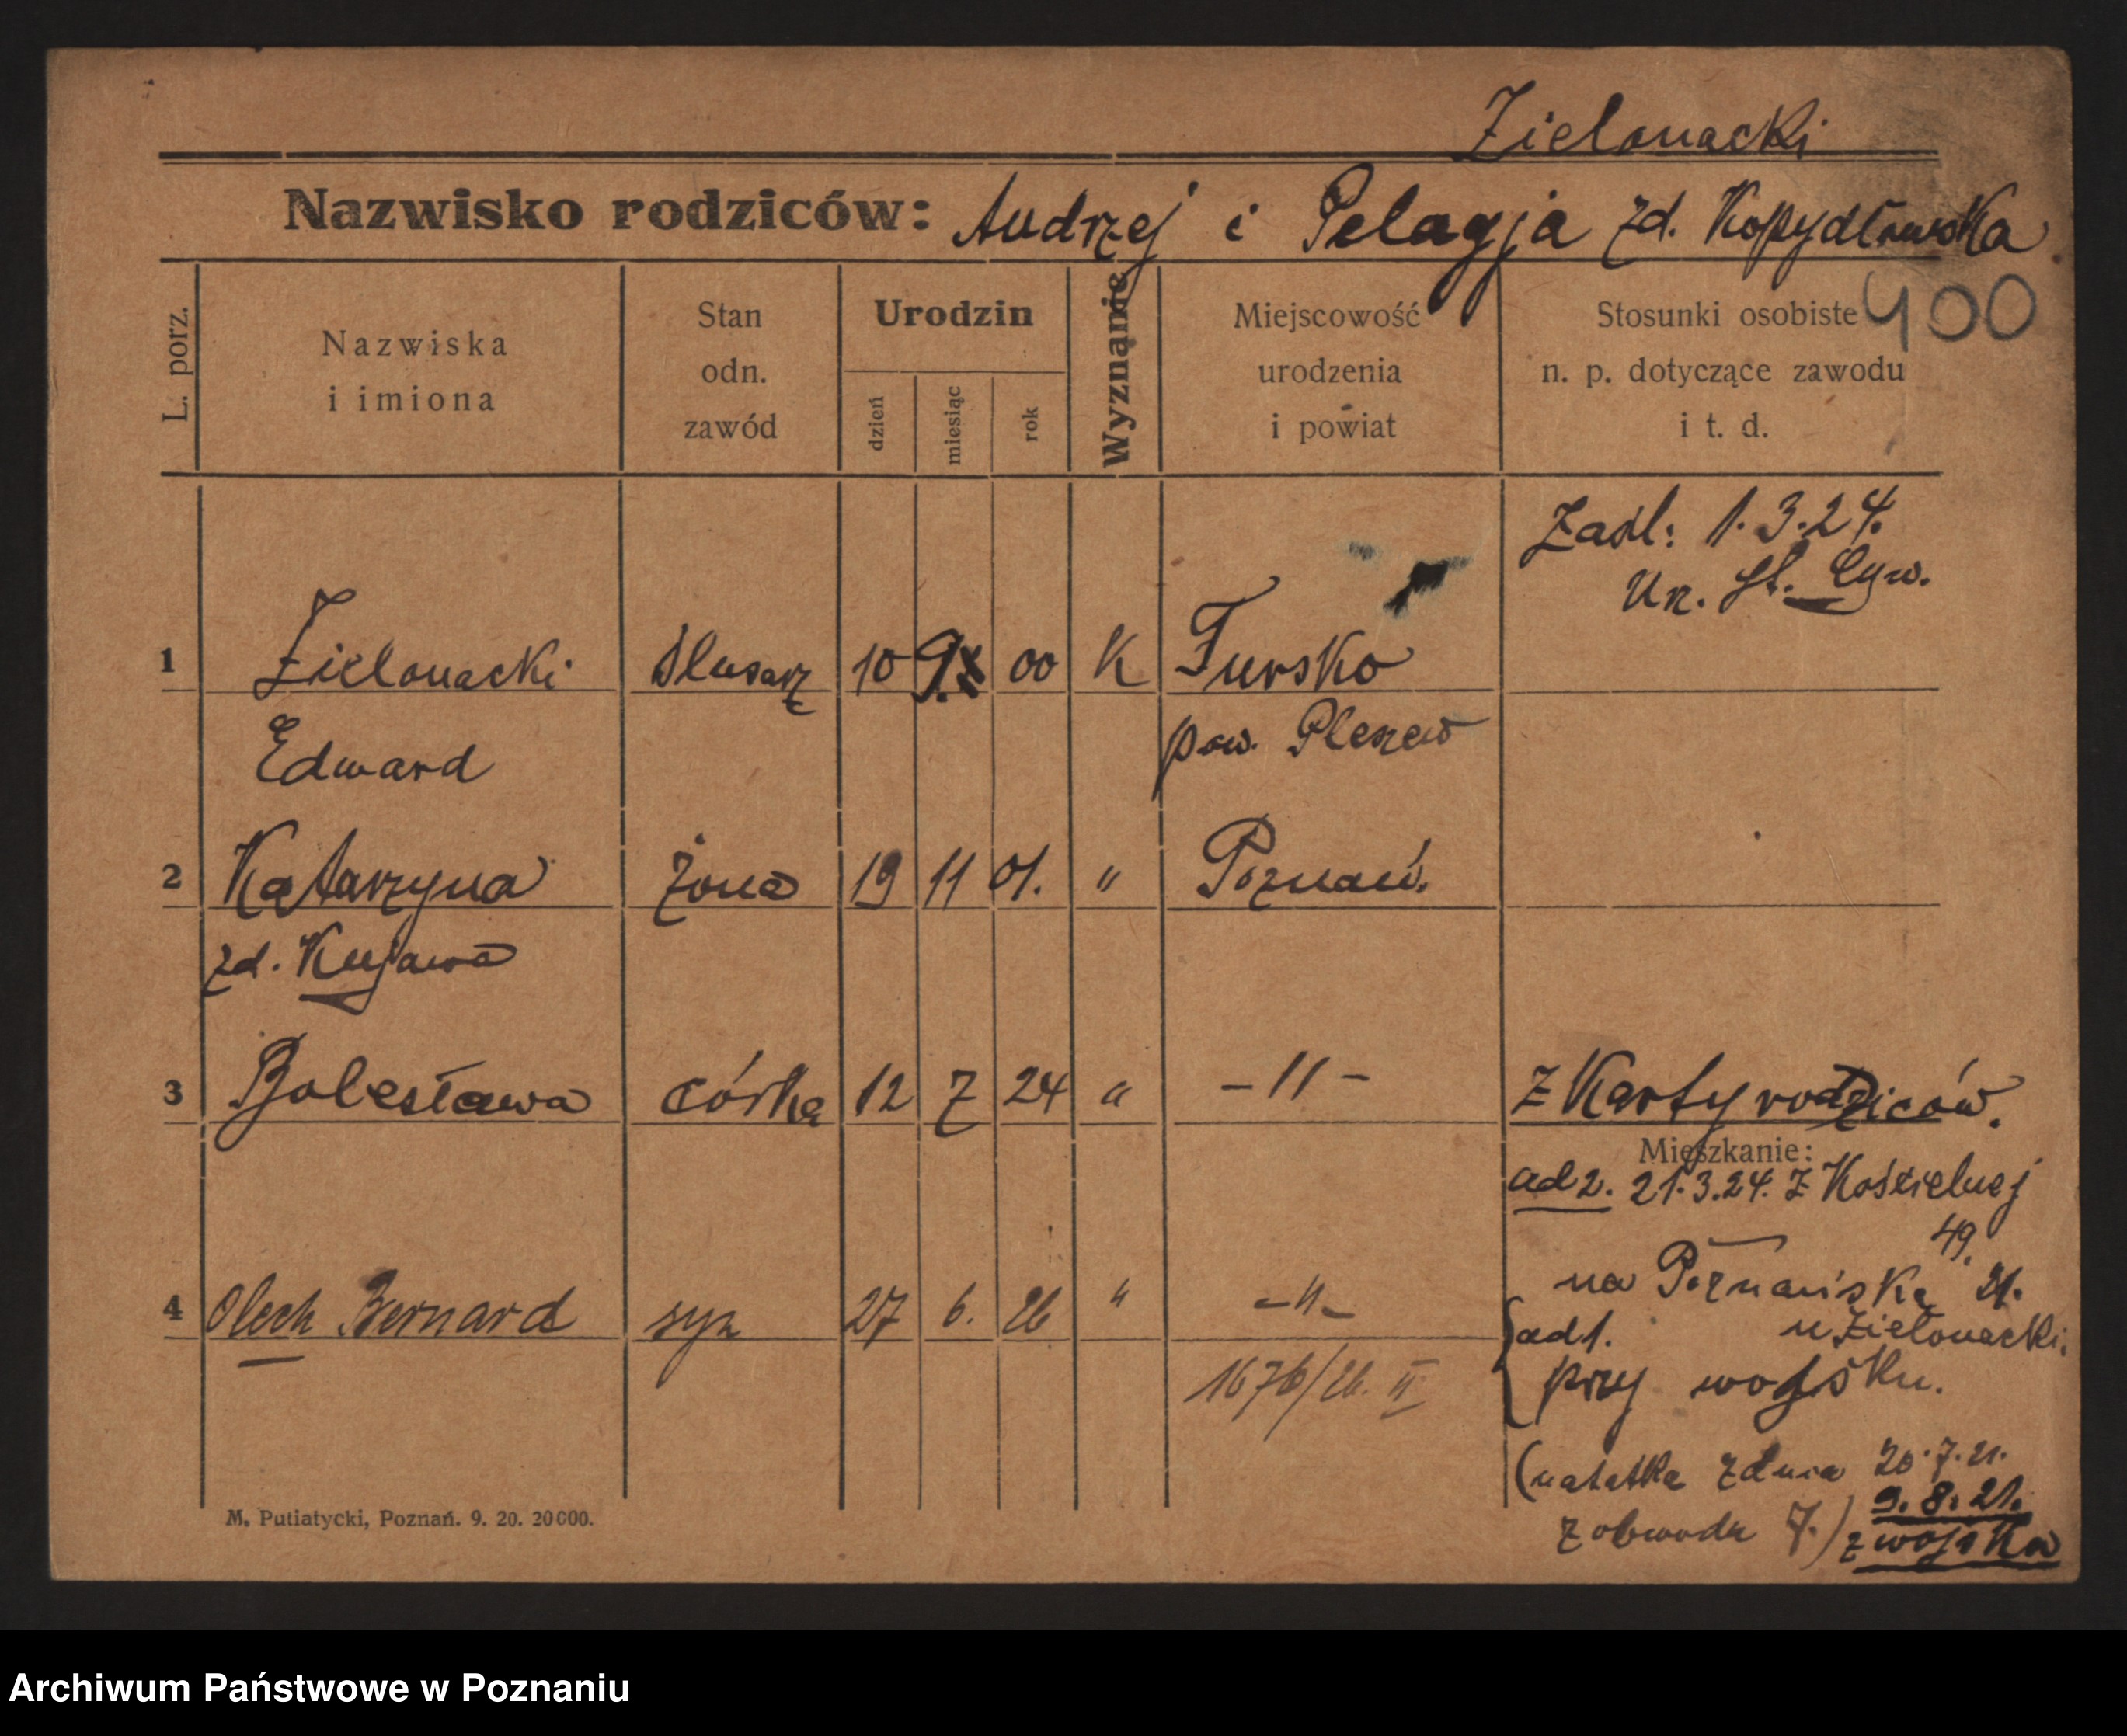 Zielonacki
Nazwisko rodziców: Andrzej i Pelagja zd. Kopydłowska
400
L. porz.
Nazwiska
i imiona
Stan
odn.
zawód
Urodzin
dzień
miesiąc
rok
Wyznanie
Miejscowość
urodzenia
i powiat
Stosunki osobiste
n. p. dotyczące zawodu
i t. d.
Zaśl: 1.3.24.
Ur. St. Cyw.
1 Zielonacki ślusarz 10 9. 00 K Tursko
Edward pow. Pleszew
2 Katarzyna żona 19 11 01. " Poznań.
zd. Kujawa
3 Bolesława córka 12 7 24 " -"- Z Karty rodziców.
Mieszkanie:
ad 2. 21.3.24. z Kościelnej
49.
na Poznańską 21.
4 Olech Bernard syn 27 6. 26 " -"-
ad 1. u Zielonacki.
1676/26. II
przy wojsku.
(notatka z dnia 20.7.21.
9.8.21.
z obwodu 7.) z wojska
M. Putiatycki, Poznań. 9. 20. 20000.
Archiwum Państwowe w Poznaniu